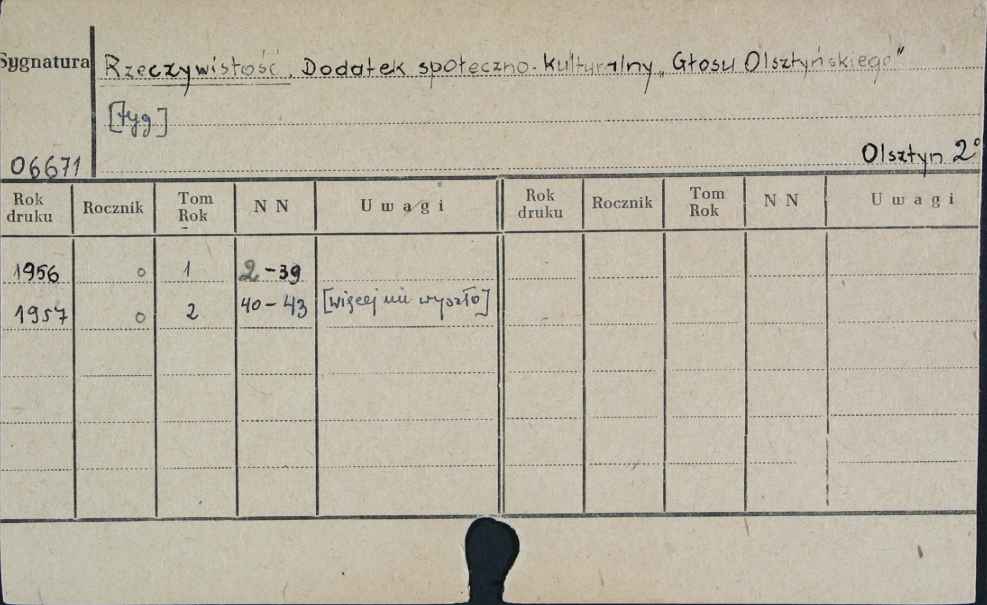 Sygnatura Rzeczywistość. Dodatek społeczno-kulturalny „Głosu Olsztyńskiego"
[tyg]
06671 Olsztyn 2°
Rok druku Rocznik Tom Rok N N Uwagi Rok druku Rocznik Tom Rok N N Uwagi
1956 o 1 2-39
1957 o 2 40-43 [więcej nie wyszło]